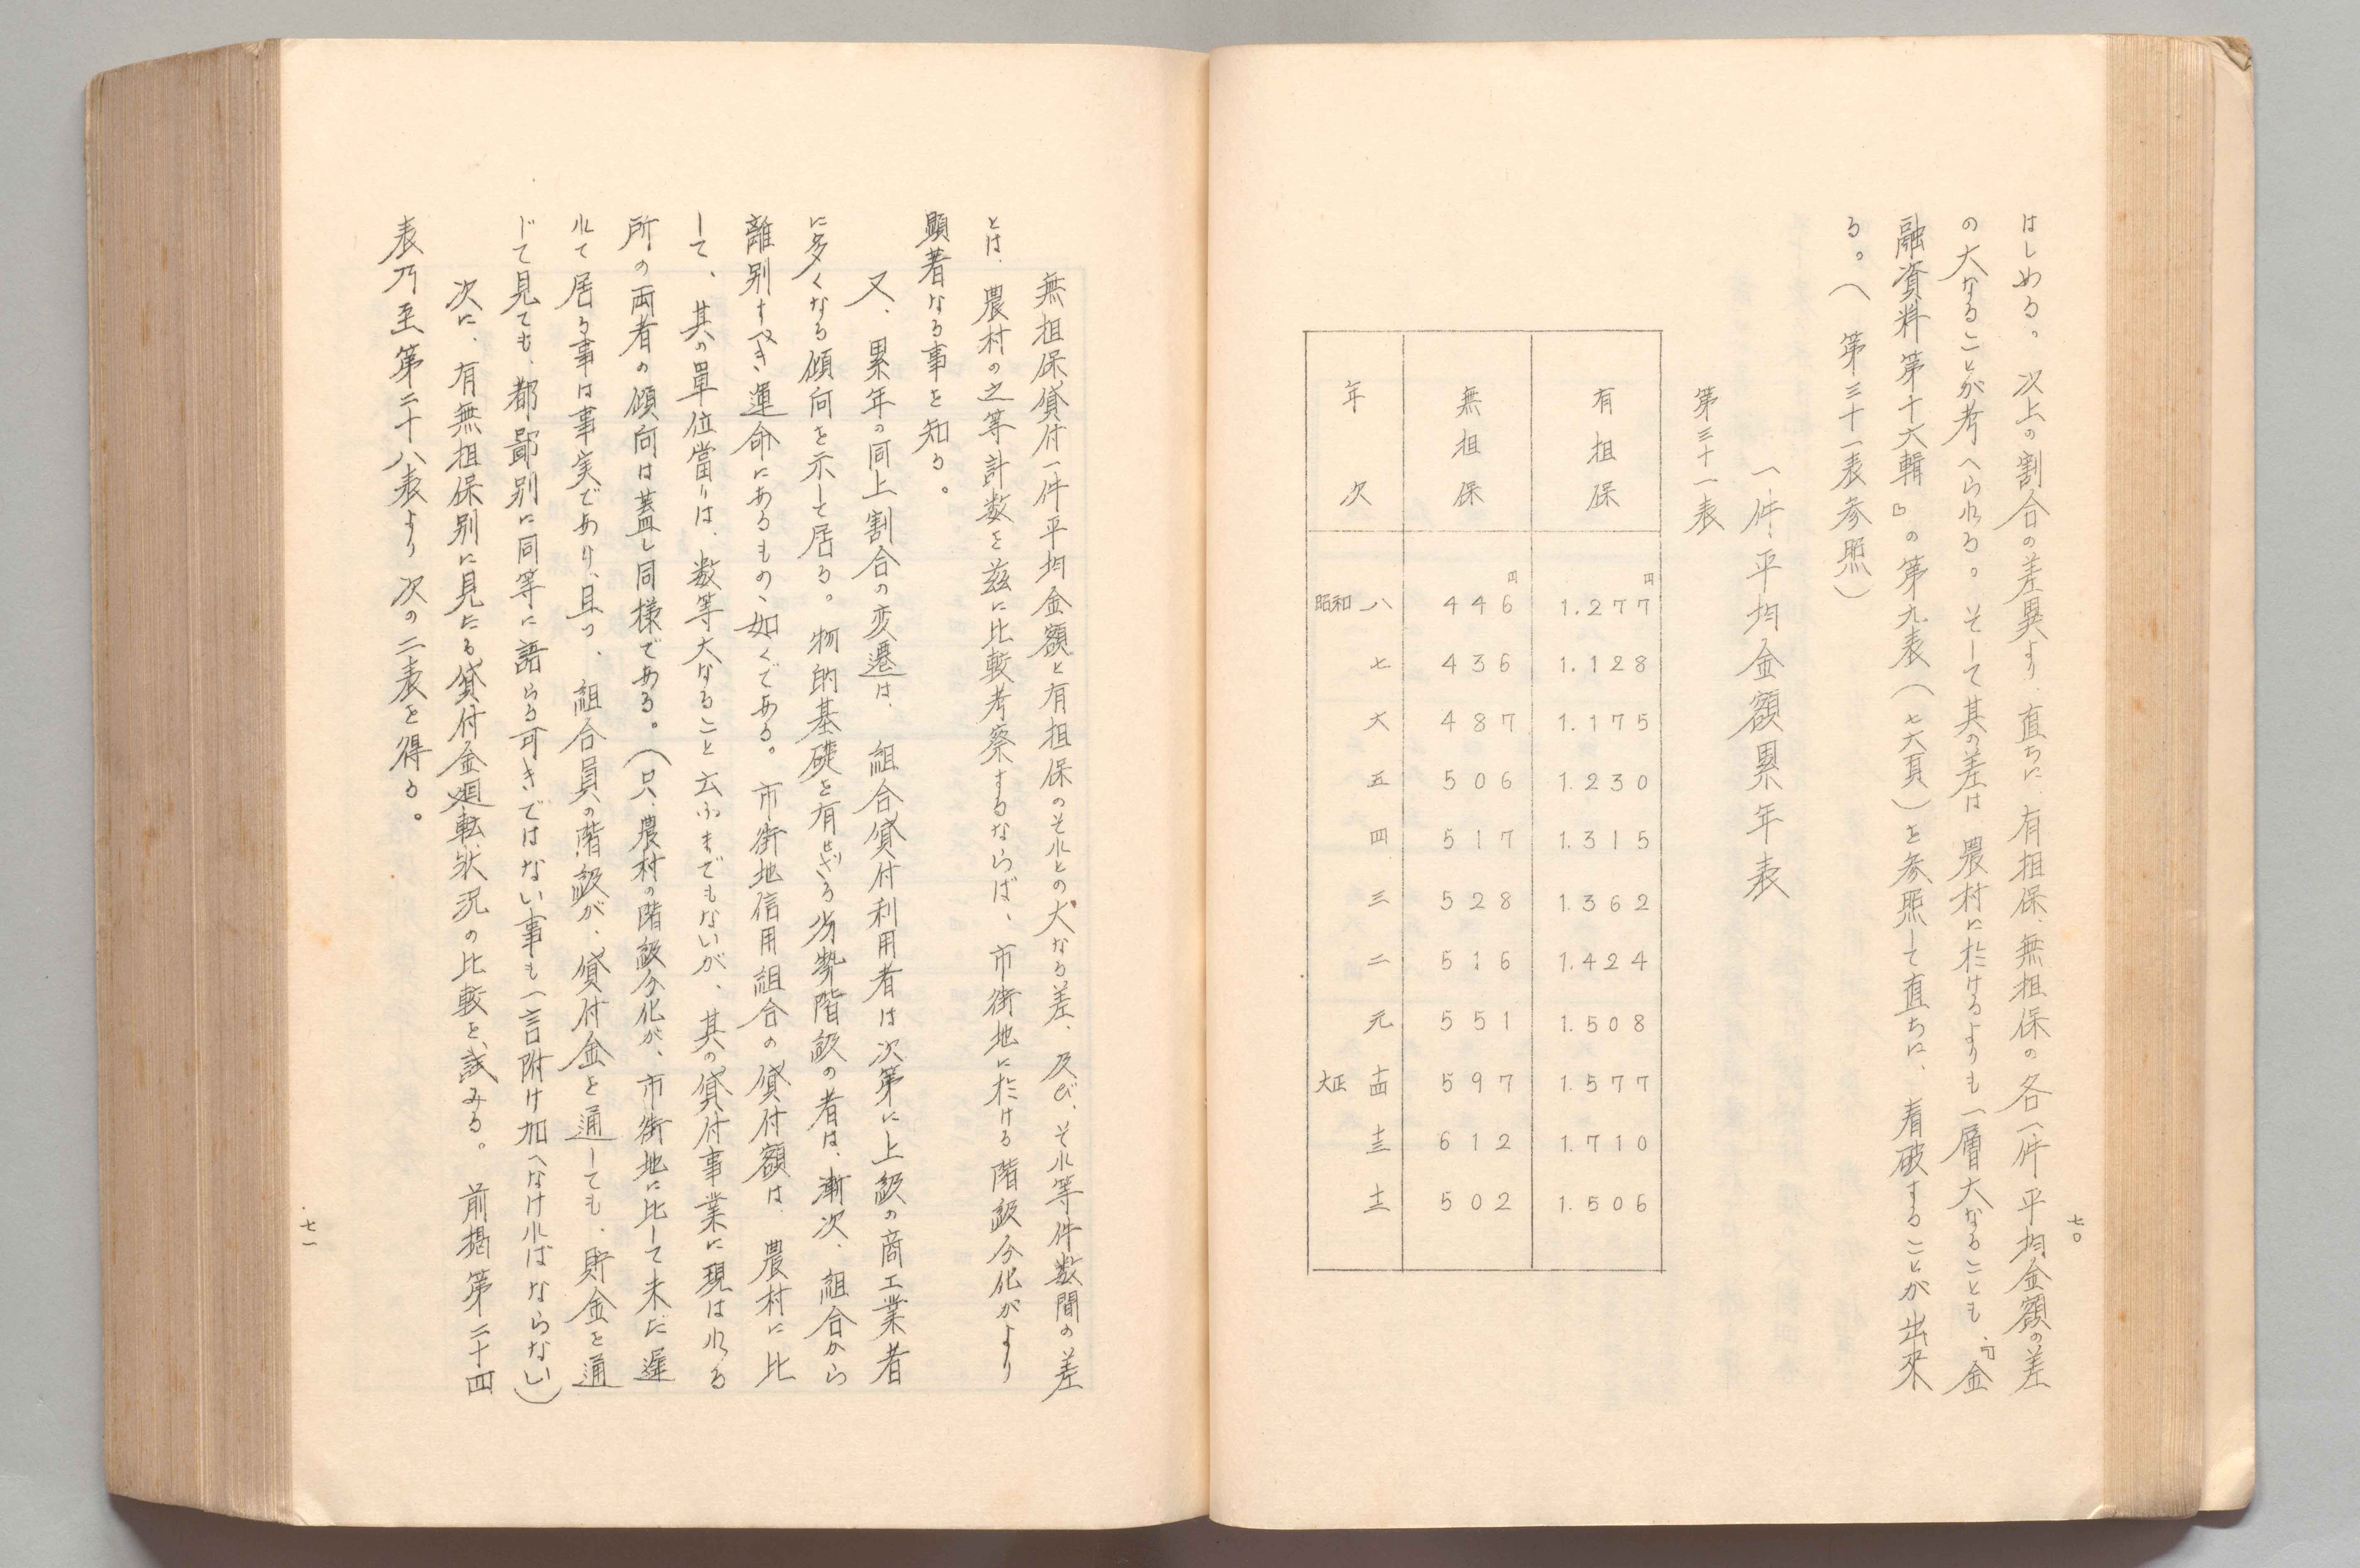 七〇
はしめる。次上の割合の差異より、直ちに、有担保、無担保の各一件平均金額の差
の大なることが考へられる。そして其の差は農村に於けるよりも一層大なることも、「金
融資料第十六輯』の第九表(七六頁)を参照して直ちに、看破することが出来
る。(第三十一表参照)
一件平均金額累年表
第三十一表
有担保 無担保 年次
円 円
1.277 446 昭和 八
1.128 436 七
1.175 487 六
1.230 506 五
1.315 517 四
1.362 528 三
1.424 516 二
1.508 551 元
1.577 597 大正 十四
1.710 612 十三
1.506 502 十二
無担保貸付一件平均金額と有担保のそれとの大なる差、及び、それ等件数間の差
とは、農村の之等計数を茲に比較考察するならば、市街地に於ける階級分化がより
顕著なる事を知る。
又、累年の同上割合の変遷は、組合貸付利用者は次第に上級の商工業者
に多くなる傾向を示して居る。物的基礎を有せざる劣勢階級の者は、漸次、組合から
離別すべき運命にあるもの、如くである。市街地信用組合の貸付額は、農村に比
して、其の単位當りは、数等大なること云ふまでもないが、其の貸付事業に現はれる
所の両者の傾向は蓋し同様である。(只、農村の階級分化が、市街地に比して未だ遅
れて居る事は事実であり、且つ、組合員の階級が、貸付金を通しても、貯金を通
じて見ても、都鄙別に同等に語らる可きではない事も一言附け加へなければならない)
次に、有無担保別に見たる貸付金廻転状況の比較を、試みる。前掲第二十四
表乃至第二十八表より次の二表を得る。
七一